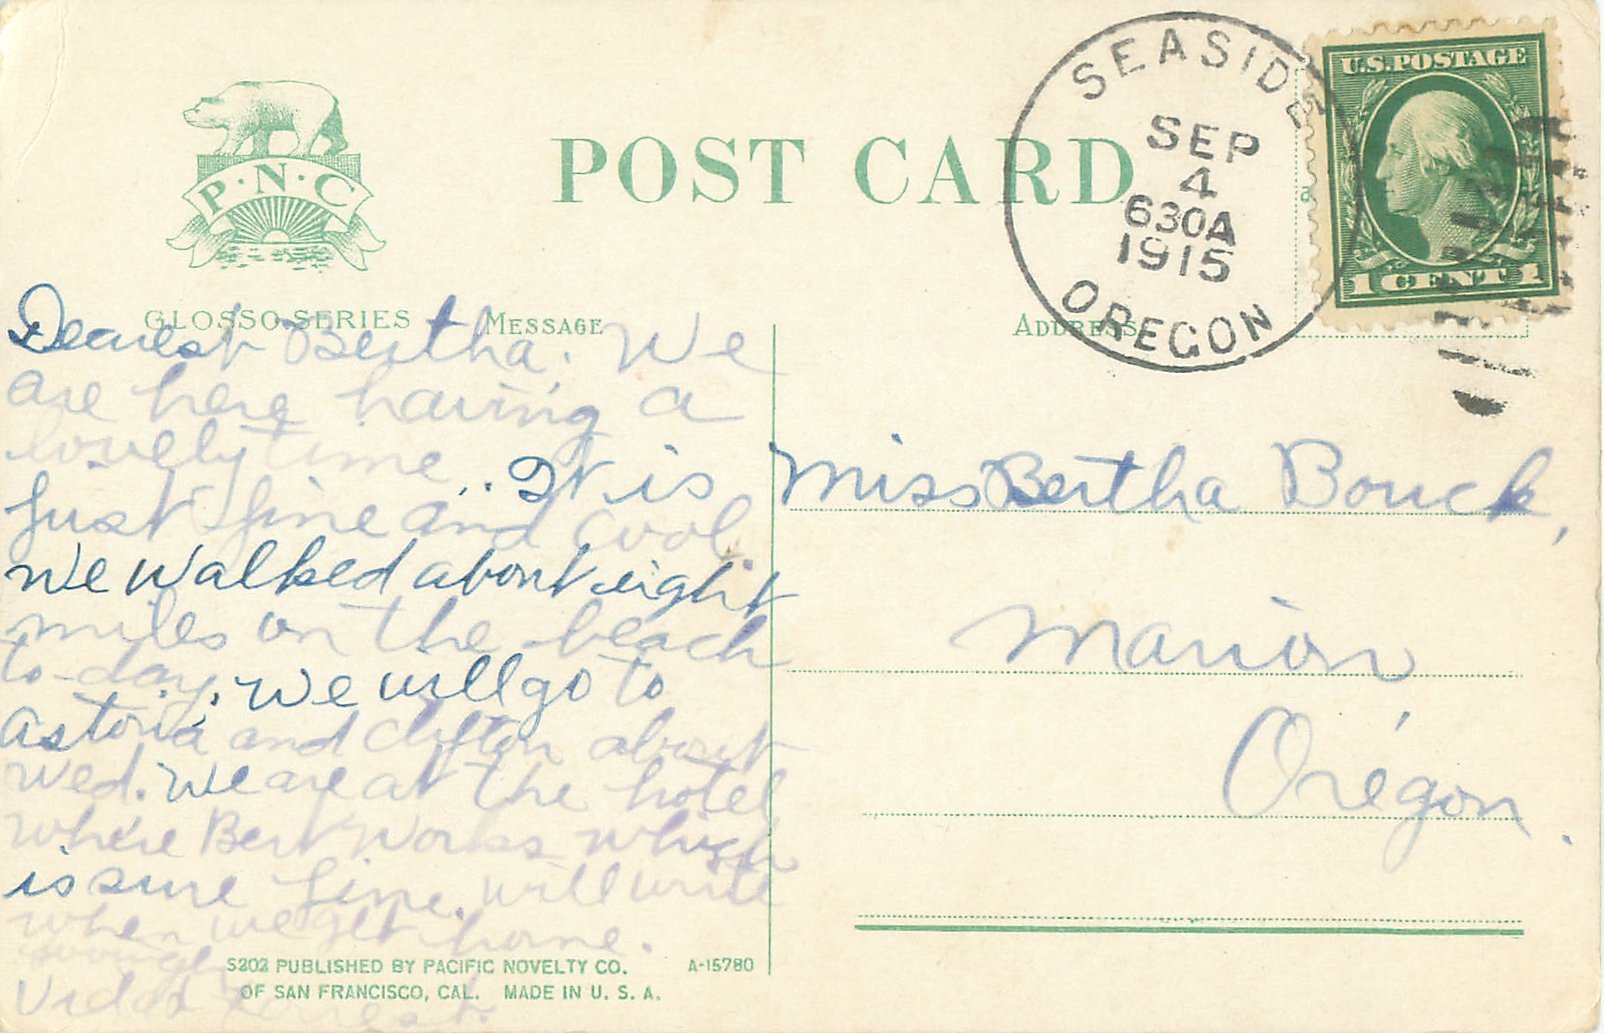 P·N·C
GLOSSO SERIES
POST CARD
MESSAGE
ADDRESS
SEASIDE
SEP
4
630A
1915
OREGON
U.S. POSTAGE
1 CENT 1
Dearest Bertha. We
are here having a
lovely time. It is
just fine and cool.
We walked about eight
miles on the beach
to-day. We will go to
Astoria and Clifton about
Wed. We are at the hotel
where Bert works which
is sure fine. will write
when we get home.
Lovingly
Miss Bertha Bouck,
Marion
Oregon.
S202 PUBLISHED BY PACIFIC NOVELTY CO.
OF SAN FRANCISCO, CAL. MADE IN U. S. A.
A-15780